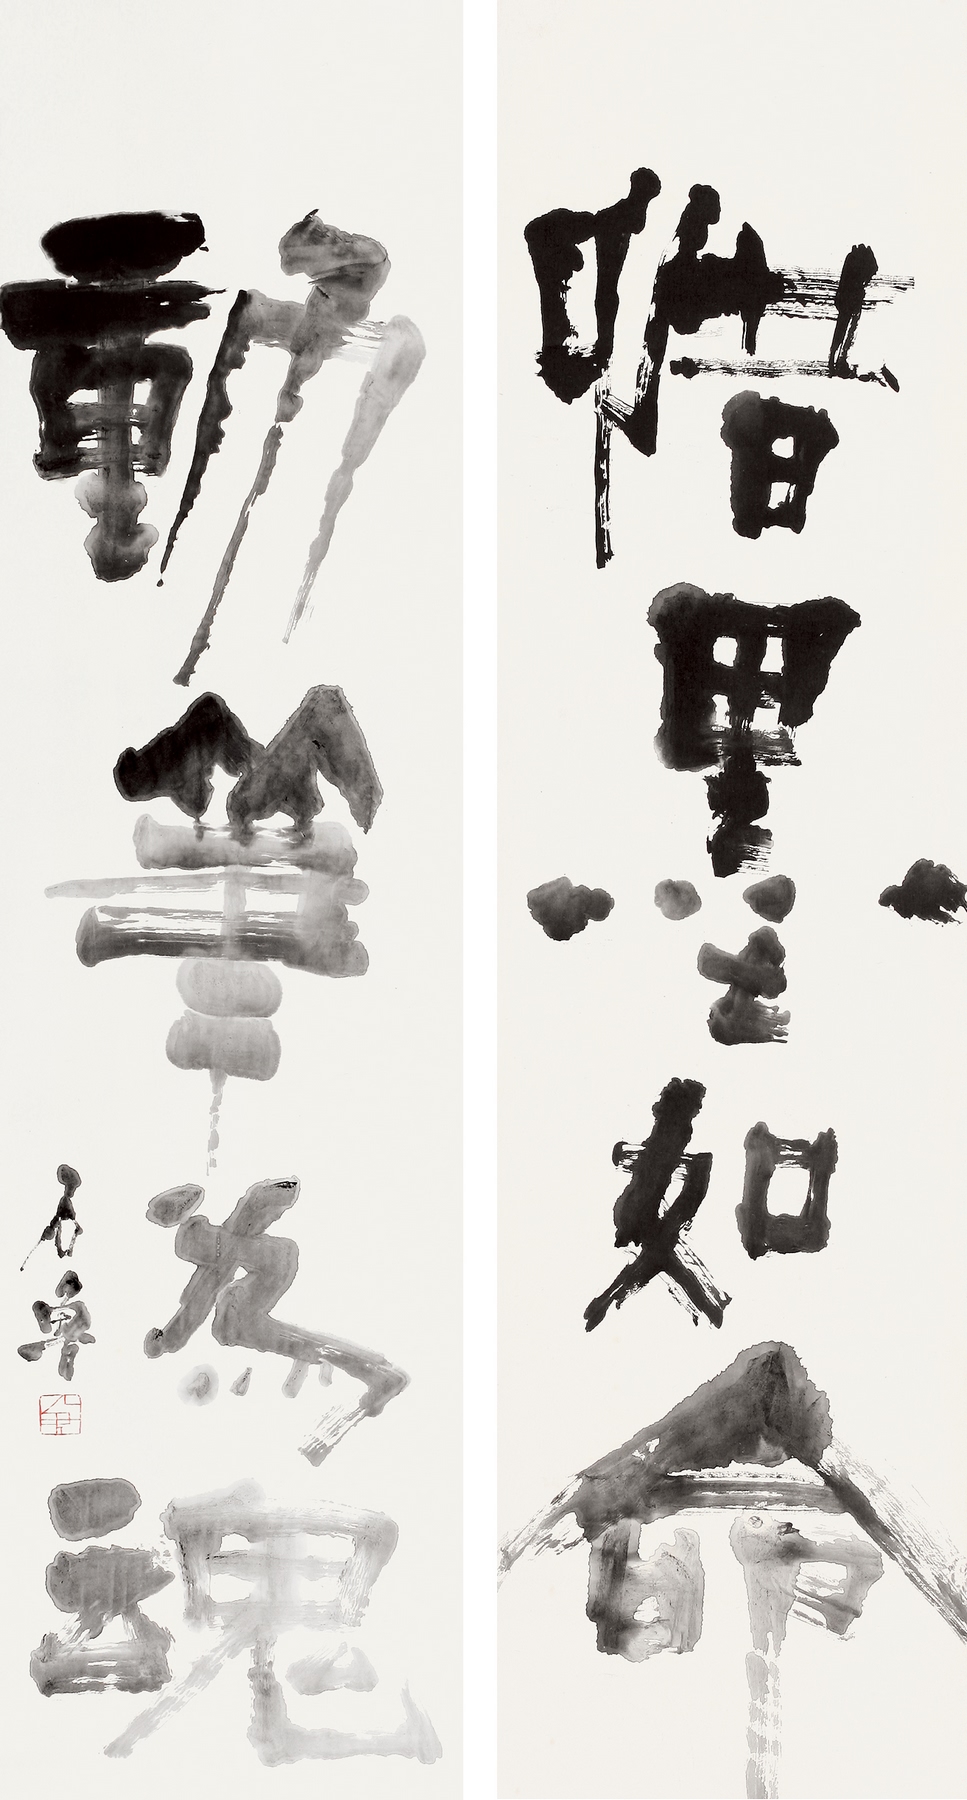 惜墨如命
動筆為魂